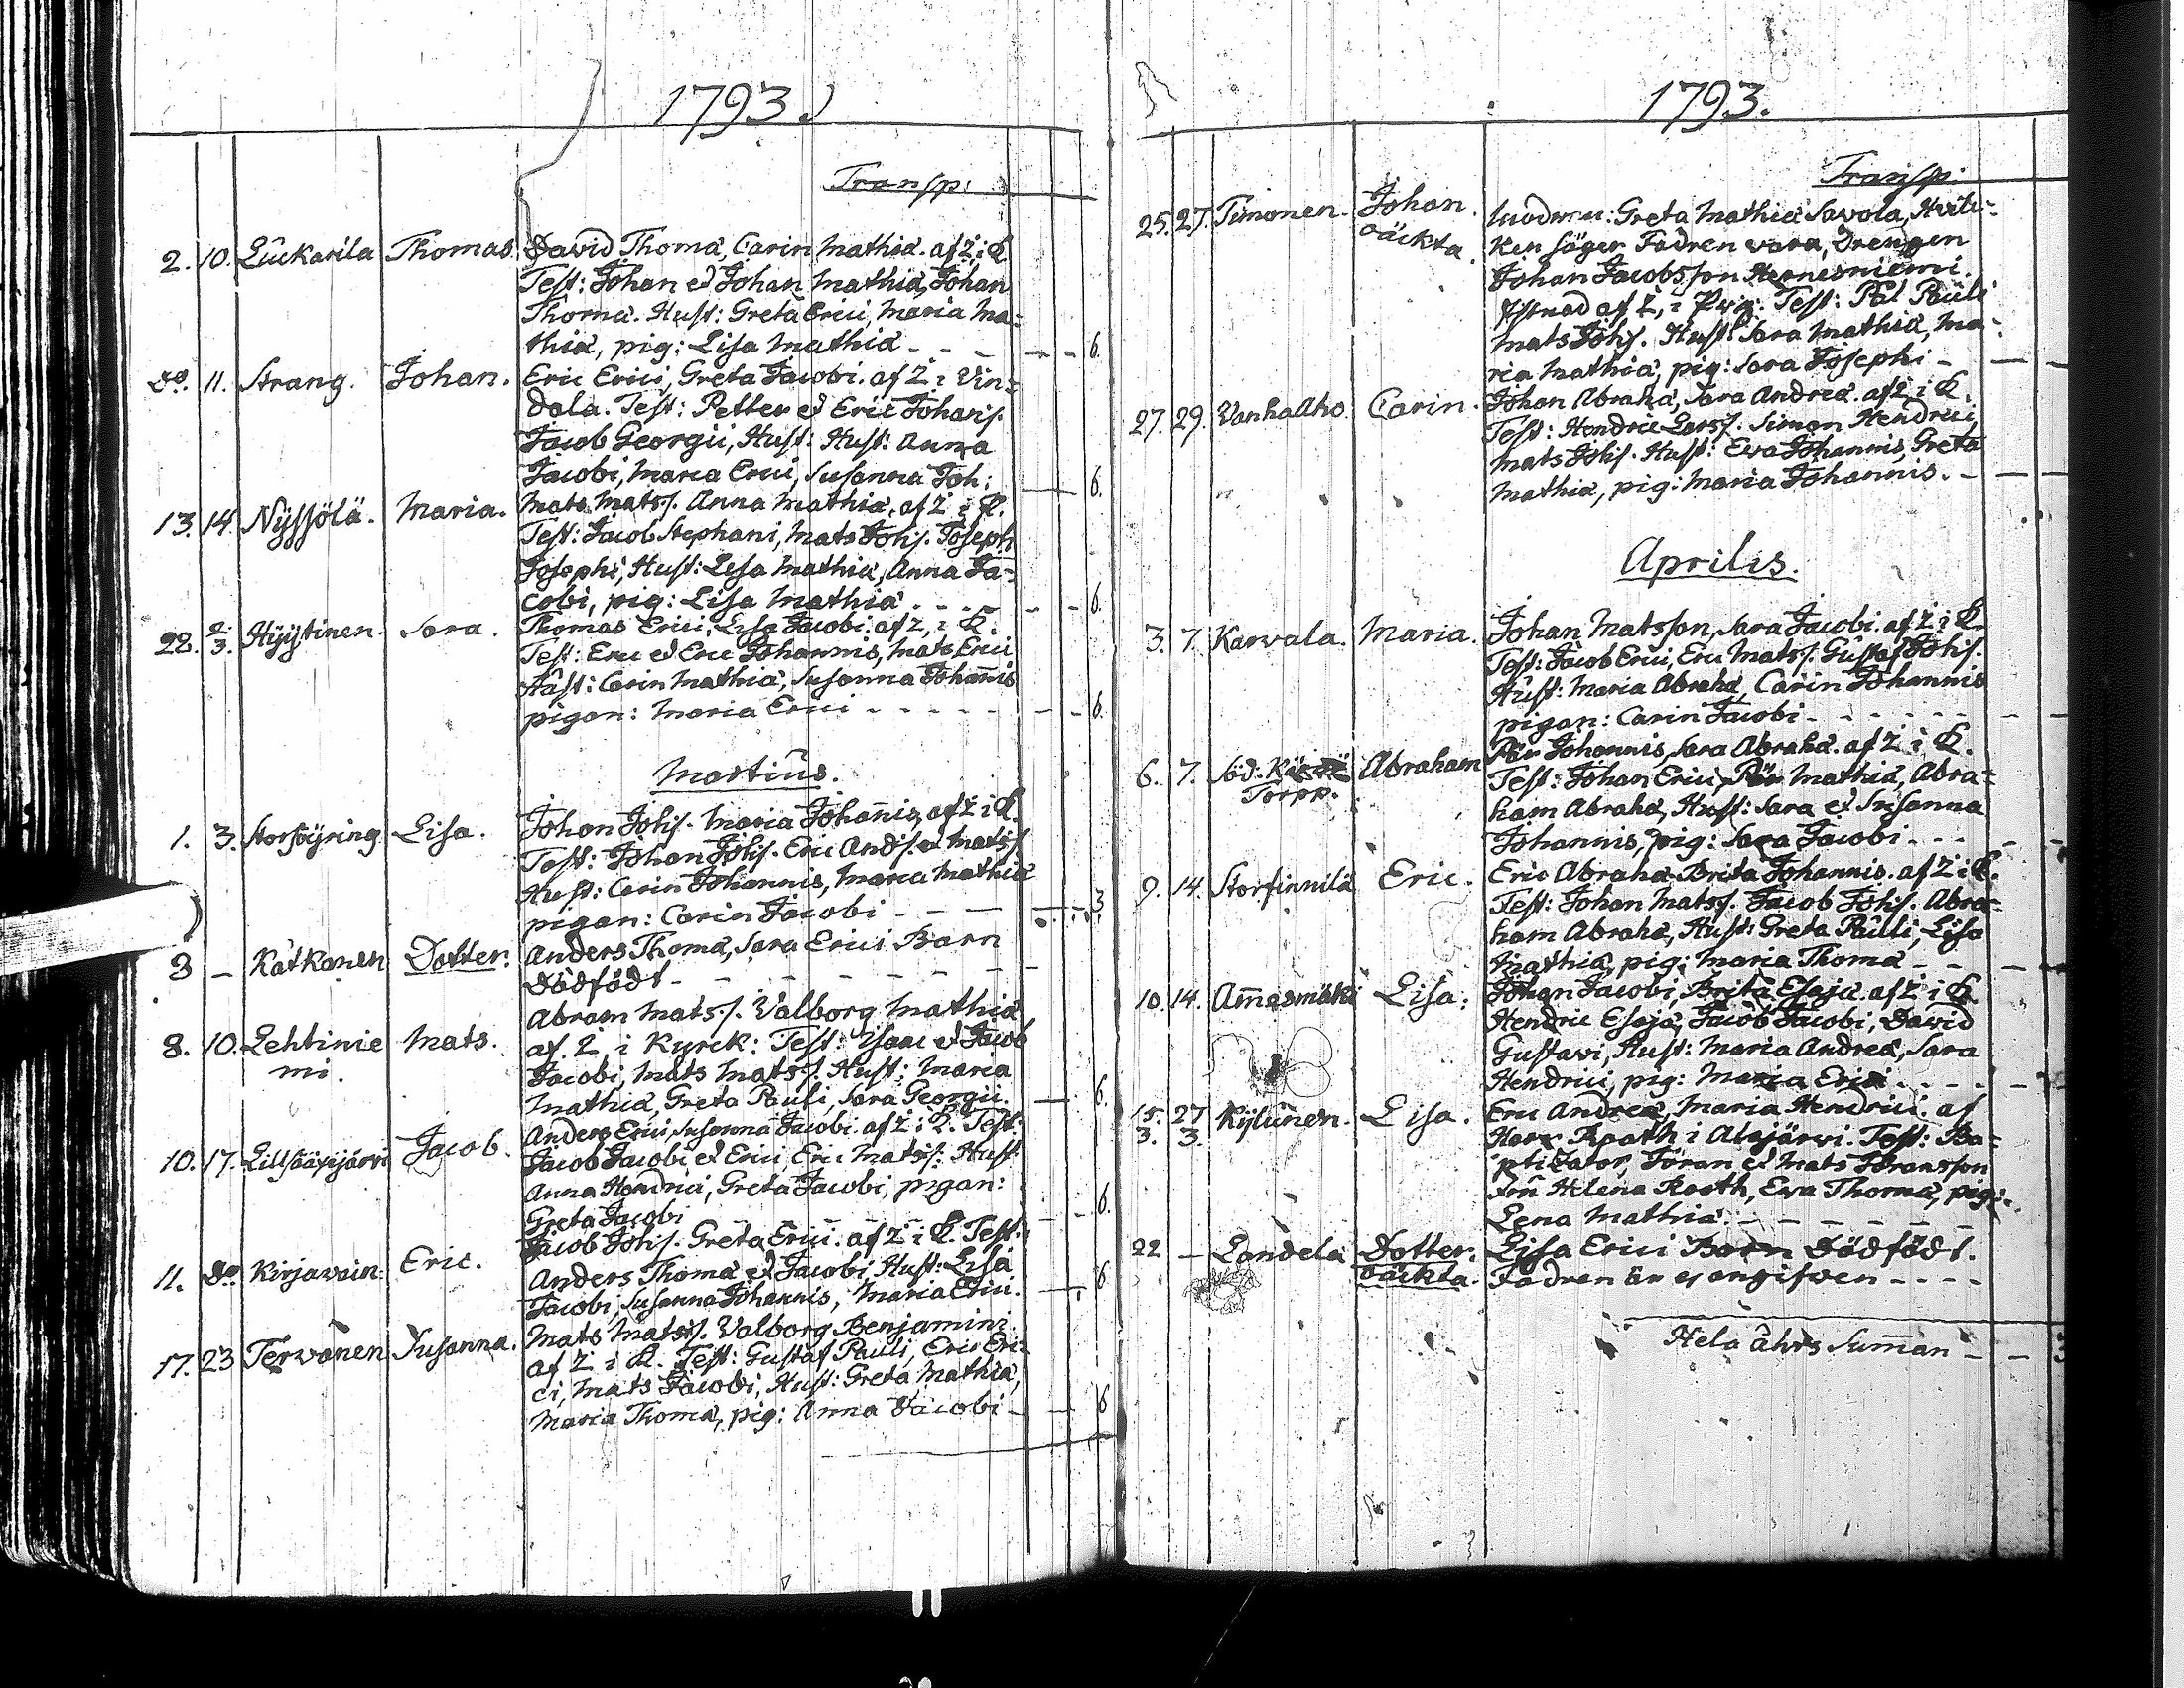 1793.
Transp:
2. 10. Luckarila Thomas. David Thomæ, Carin Mathiæ. af Z, i K.
Test: Johan et Johan Mathiæ, Johan
Thomæ. Hust: Greta Erici, Maria Ma=
thiæ, pig: Lisa Mathiæ - - - - - 6.
Do. 11. Strang. Johan. Eric Erici, Greta Jacobi. af Z i Vin=
dala. Test: Petter et Eric Johans.
Jacob Georgii, Hust: Hust: Anna
Jacobi, Maria Erici, Susanna Joh: — 6.
13. 14. Nyssölä. Maria. Mats Mats s. Anna Mathiæ, af Z i K.
Test: Jacob Stephani, Mats Johs. Joseph
Josephi, Hust: Lisa Mathiæ, Anna Ja=
cobi, pig: Lisa Mathiæ. - - - - - 6.
22. 2/3. Hyytinen. Sara. Thomas Erici, Lisa Jacobi. af Z, i K.
Test: Eric et Eric Johannis, Mats Erici
Hust: Carin Mathiæ, Susanna Johañis
pigan: Maria Erici - - - - - - - 6.
Martius.
1. 3. Storbyring Lisa. Johan Johs. Maria Johañis, af Z i K.
Test: Johan Johs. Eric Ands. et Mats s.
Hust: Carin Johannis, Maria Mathiæ
pigan: Carin Jacobi - - - - 3.
3 — Kätkänen Dotter. Anders Thomæ, Sara Erici Barn
Dödfödt - - - - - - - -
8. 10. Lehtinie Mats. Abram Mats s. Valborg Mathiæ
mi. af Z i Kyrck: Test: Isaac et Jacob
Jacobi, Mats Mats s. Hust: Maria
Mathiæ, Greta Pauli, Sara Georgii. — 6.
10. 17. Jacob. Anders Erici, Susanna Jacobi. af Z i K. Test:
Jacob Jacobi et Erici, Eric Mats s: Hust:
Anna Hendrici, Greta Jacobi, pigan:
Greta Jacobi - - - - - 6.
11. Do Kirjavain: Eric. Jacob Johs. Greta Erici. af Z i K. Test:
Anders Thomæ et Jacobi, Hust: Lisa
Jacobi, Susanna Johannis, Maria Erici. — 6
17. 23 Tervonen Susanna. Mats Mats s. Valborg Benjamini.
af Z i K. Test: Gustaf Pauli, Eric Eri=
ci, Mats Jacobi, Hust: Greta Mathiæ,
Maria Thomæ, pig: Anna Jacobi - — 6
1793.
Transp:
25. 27. Timonen. Johan. Greta Mathiæ Savola, Hvil=
oäckta. ken säger Fadren vara, Drengen
Johan Jacobsson Hernesniemi.
af Z, i Pig: Test: Pål Pauli
Mats Johs. Hust: Sara Mathiæ, Ma=
ria Mathiæ, pig: Sara Josephi - —
27. 29. Vanha Aho. Carin. Johan Abrahæ, Sara Andreæ. af Z i K.
Test: Hendric Lars s. Simon Hendrici
Mats Johs. Hust: Eva Johannis, Greta
Mathiæ, pig: Maria Johannis. - —
Aprilis.
3. 7. Karvala. Maria. Johan Matsson, Sara Jacobi. af Z i K.
Test: Jacob Erici, Eric Mats s. Gustaf Johs.
Hust: Maria Abrahæ, Carin Johannis
pigan: Carin Jacobi - - - - - -
6. 7. Söd: Abraham Pär Johannis, Sara Abrahæ. af Z i K.
Torpp. Test: Johan Erici, Pär Mathiæ, Abra=
ham Abrahæ, Hust: Sara et Susanna
Johannis, pig: Sara Jacobi - - -
9. 14. Storfinnilä Eric. Eric Abrahæ Brita Johannis. af Z i K.
Test: Johan Mats s. Jacob Johs. Abra=
ham Abrahæ, Hust: Greta Pauli, Lisa
Mathiæ, pig: Maria Thomæ - - —
10. 14. Am̄esmäki Lisa. Johan Jacobi, Brita Esajæ. af Z i K
Hendric Esajæ, Jacob Jacobi, David
Gustavi, Hust: Maria Andreæ, Sara
Hendrici, pig: Maria Erici - - - -
15. 27 Kylunen. Lisa. Eric Andreæ, Maria Hendrici. af
3. 3. Herr Roath i Alajärvi. Test: Ba=
ptizator, Jöran et Mats Jöransson
Fru Helena Roath, Eva Thomæ, pig:
Lena Mathiæ. - - - - - -
22 — Landela Dotter. Lisa Erici Barn Dödfödt.
oäckta. Fadren är ej angifven - - - -
Hela åhrs Sum̄an - -